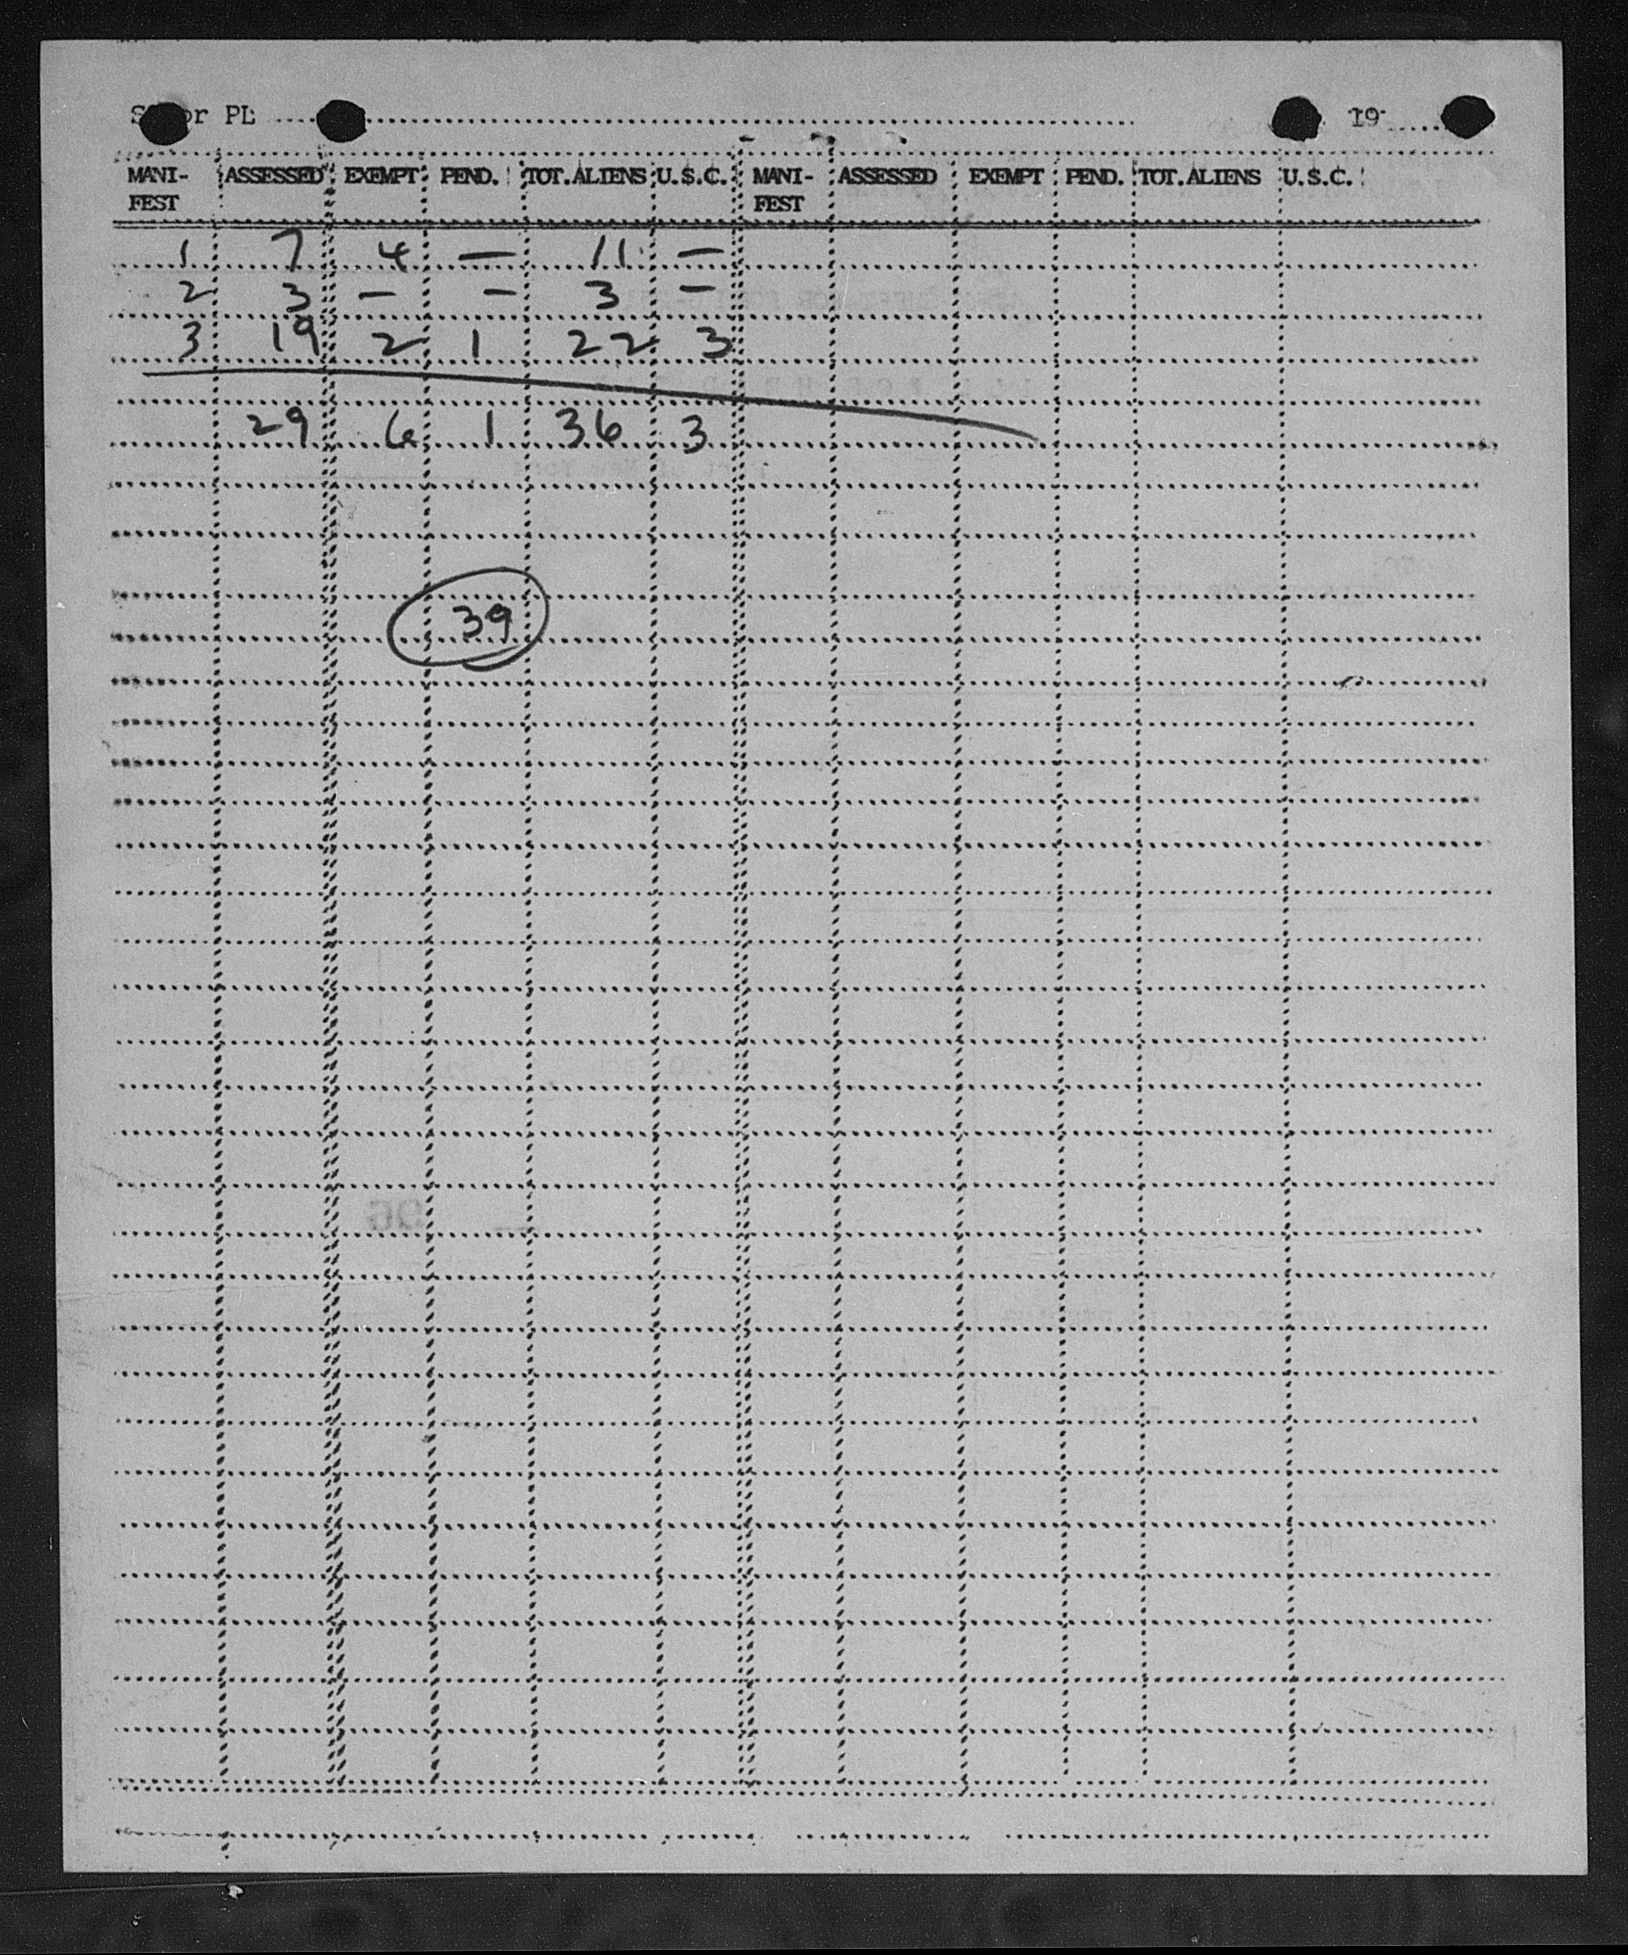 or PL 19
MANI- ASSESSED EXEMPT PEND. TOT.ALIENS U.S.C. MANI- ASSESSED EXEMPT PEND. TOT.ALIENS U.S.C.
FEST FEST
1 7 4 — 11 —
2 3 — — 3 —
3 19 2 1 22 3
29 6 1 36 3
39